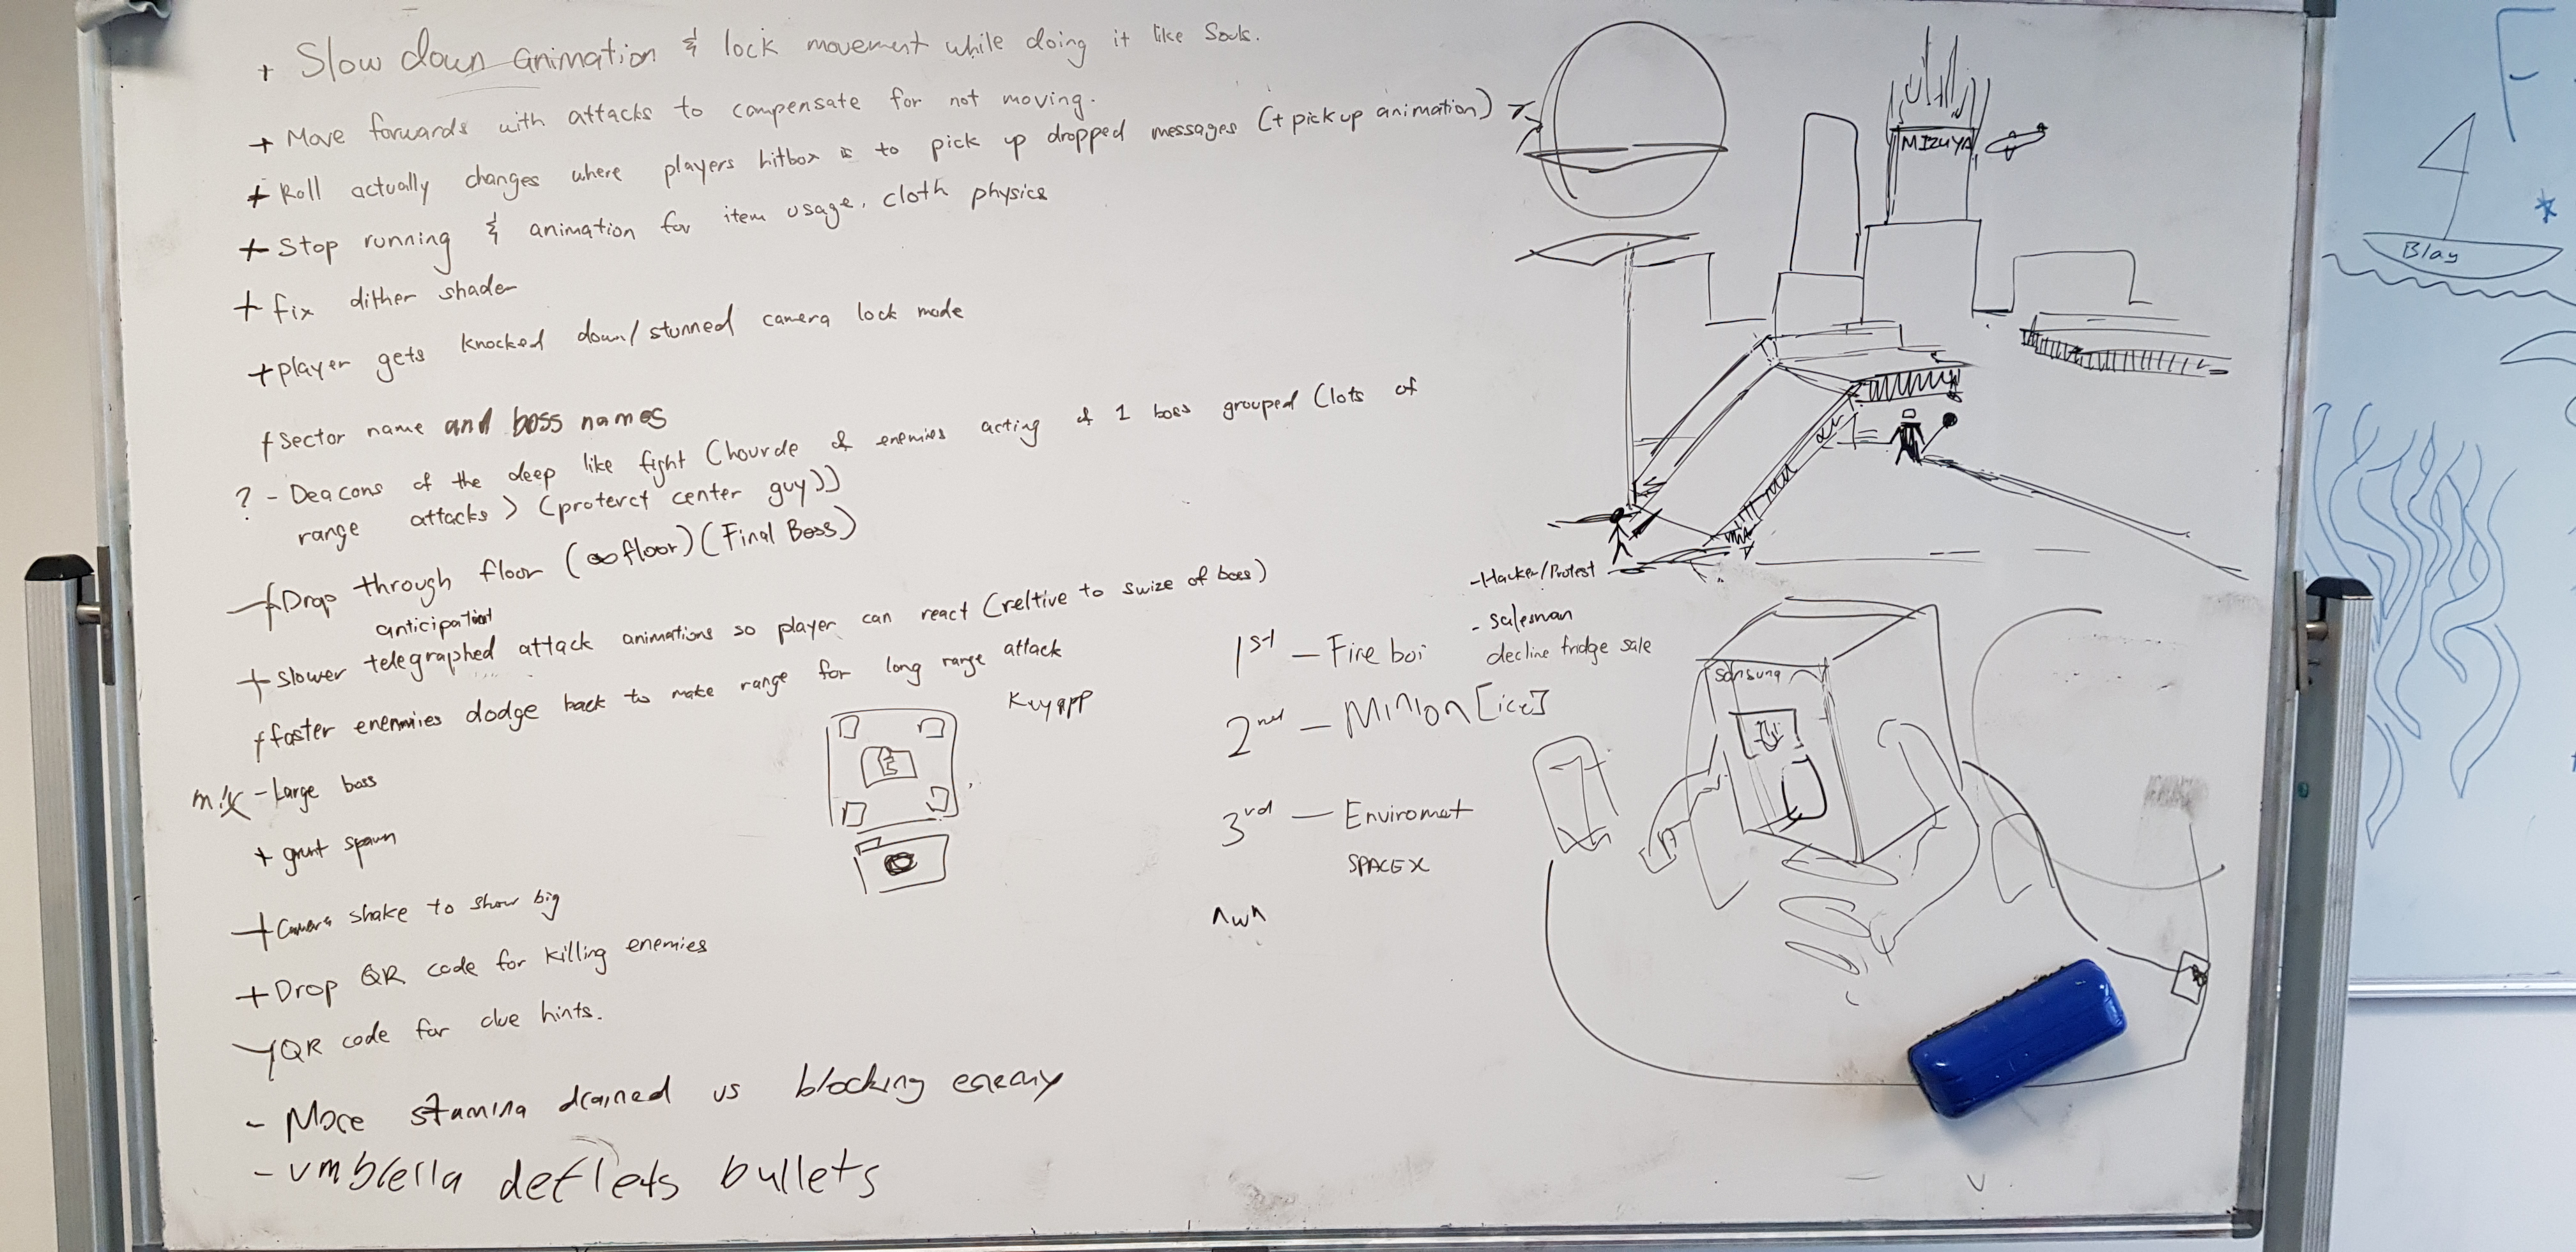 + Slow down animation & lock movement while doing it like Souls.
+ Move forwards with attacks to compensate for not moving.
+ Roll actually changes where players hitbox is to pick up dropped messages (+ pick up animation)
+ Stop running & animation for item usage, cloth physics
+ fix dither shader
+ player gets knocked down/stunned camera lock mode
+ Sector name and boss names
? - Deacons of the deep like fight (hourde of enemies acting of 1 boss grouped (lots of
range attacks) (proterct center guy))
+ Drop through floor (∞ floor) (Final Boss)
anticipation
+ slower telegraphed attack animations so player can react (reltive to swize of boss)
+ faster enenmies dodge back to make range for long range attack
mix - Large boss
+ grunt spawn
+ Camera shake to show big
+ Drop QR code for killing enemies
+ QR code for clue hints.
- More stamina drained vs blocking enemy
- umbrella deflets bullets
Kuyapp
MIZUYA
- Hacker/Protest
- Salesman
decline fridge sale
1st - Fire boi
2nd - Minion [ice]
3rd - Enviromet
SPACEX
^w^
Samsung
F
Blay